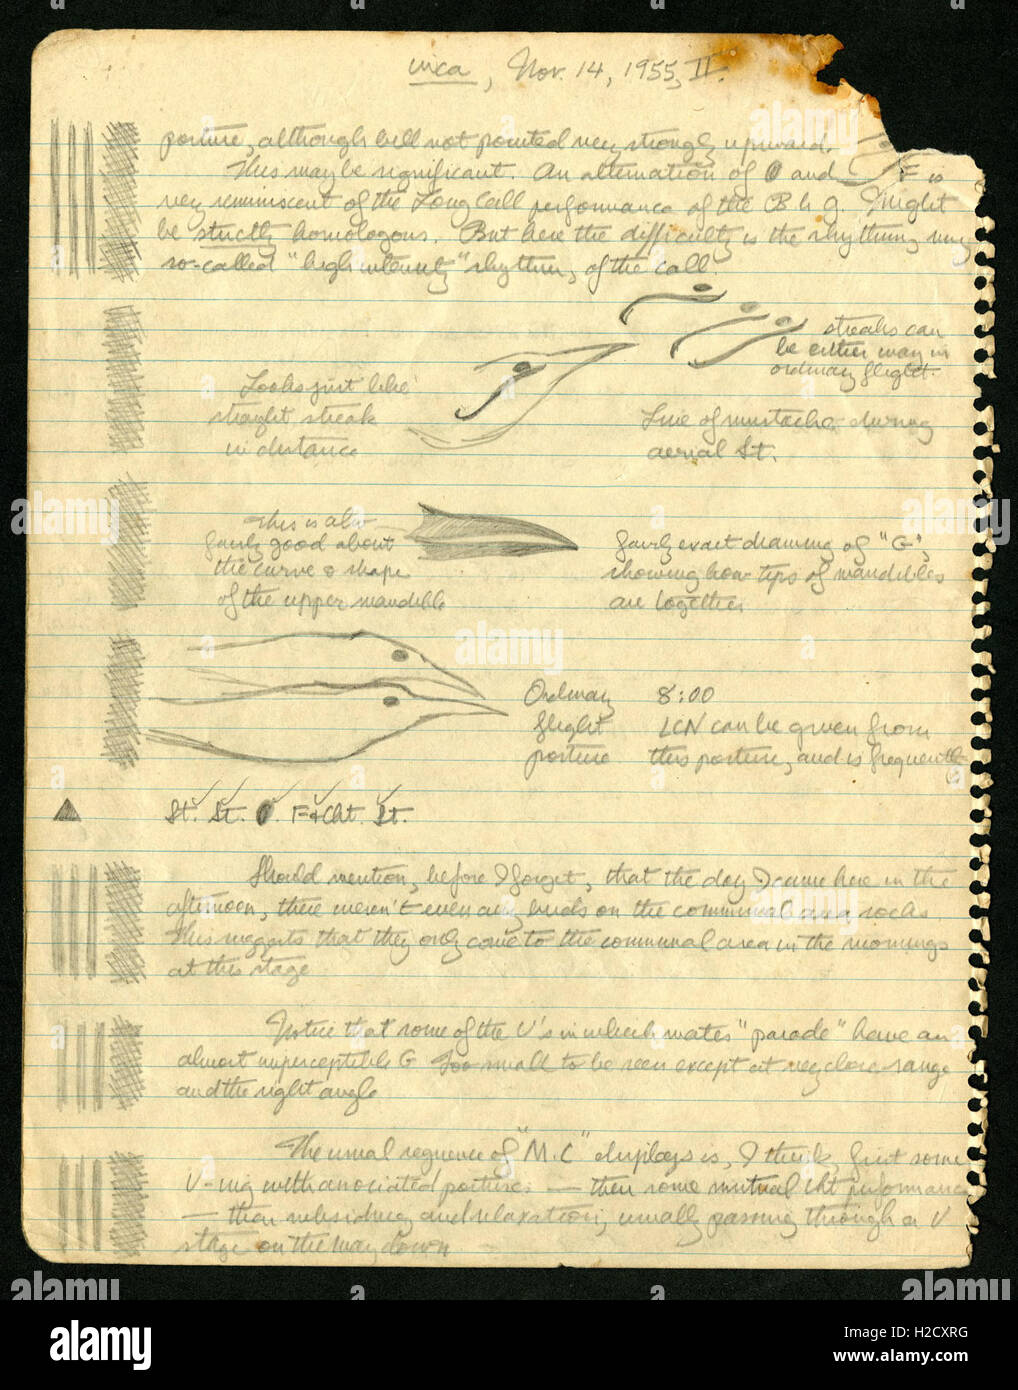 inca, Nov. 14, 1955, II.
posture, although bill not pointed very strongly upward.
This may be significant. An alternation of O and F is
very reminiscent of the Long Call performance of the B h g. Might
be strictly homologous. But here the difficulty is the rhythm, very
so-called "high intensity" rhythm, of the call.
streaks can
be either way in
ordinary flight.
Looks just like
straight streak
in distance
Line of mustache during
aerial St.
This is also
fairly good about
the curve & shape
of the upper mandible
fairly exact drawing of "G",
showing how tips of mandibles
are together
Ordinary
flight
posture
8:00
LCN can be given from
this posture, and is frequently
St. St. O. F+Cht. St.
Should mention, before I forget, that the day I came here in the
afternoon, there weren't even any birds on the communal area rocks.
This suggests that they only come to the communal area in the mornings
at this stage
Notice that some of the V's in which mates "parade" have an
almost imperceptible G. Too small to be seen except at very close range
and the right angle
The usual sequence of "M.C" displays is, I think, first some
V-ing with associated postures — then some mutual Cht performance
— then subsiding and relaxation, usually passing through a V
stage on the way down
alamy
H2CXRG
www.alamy.com